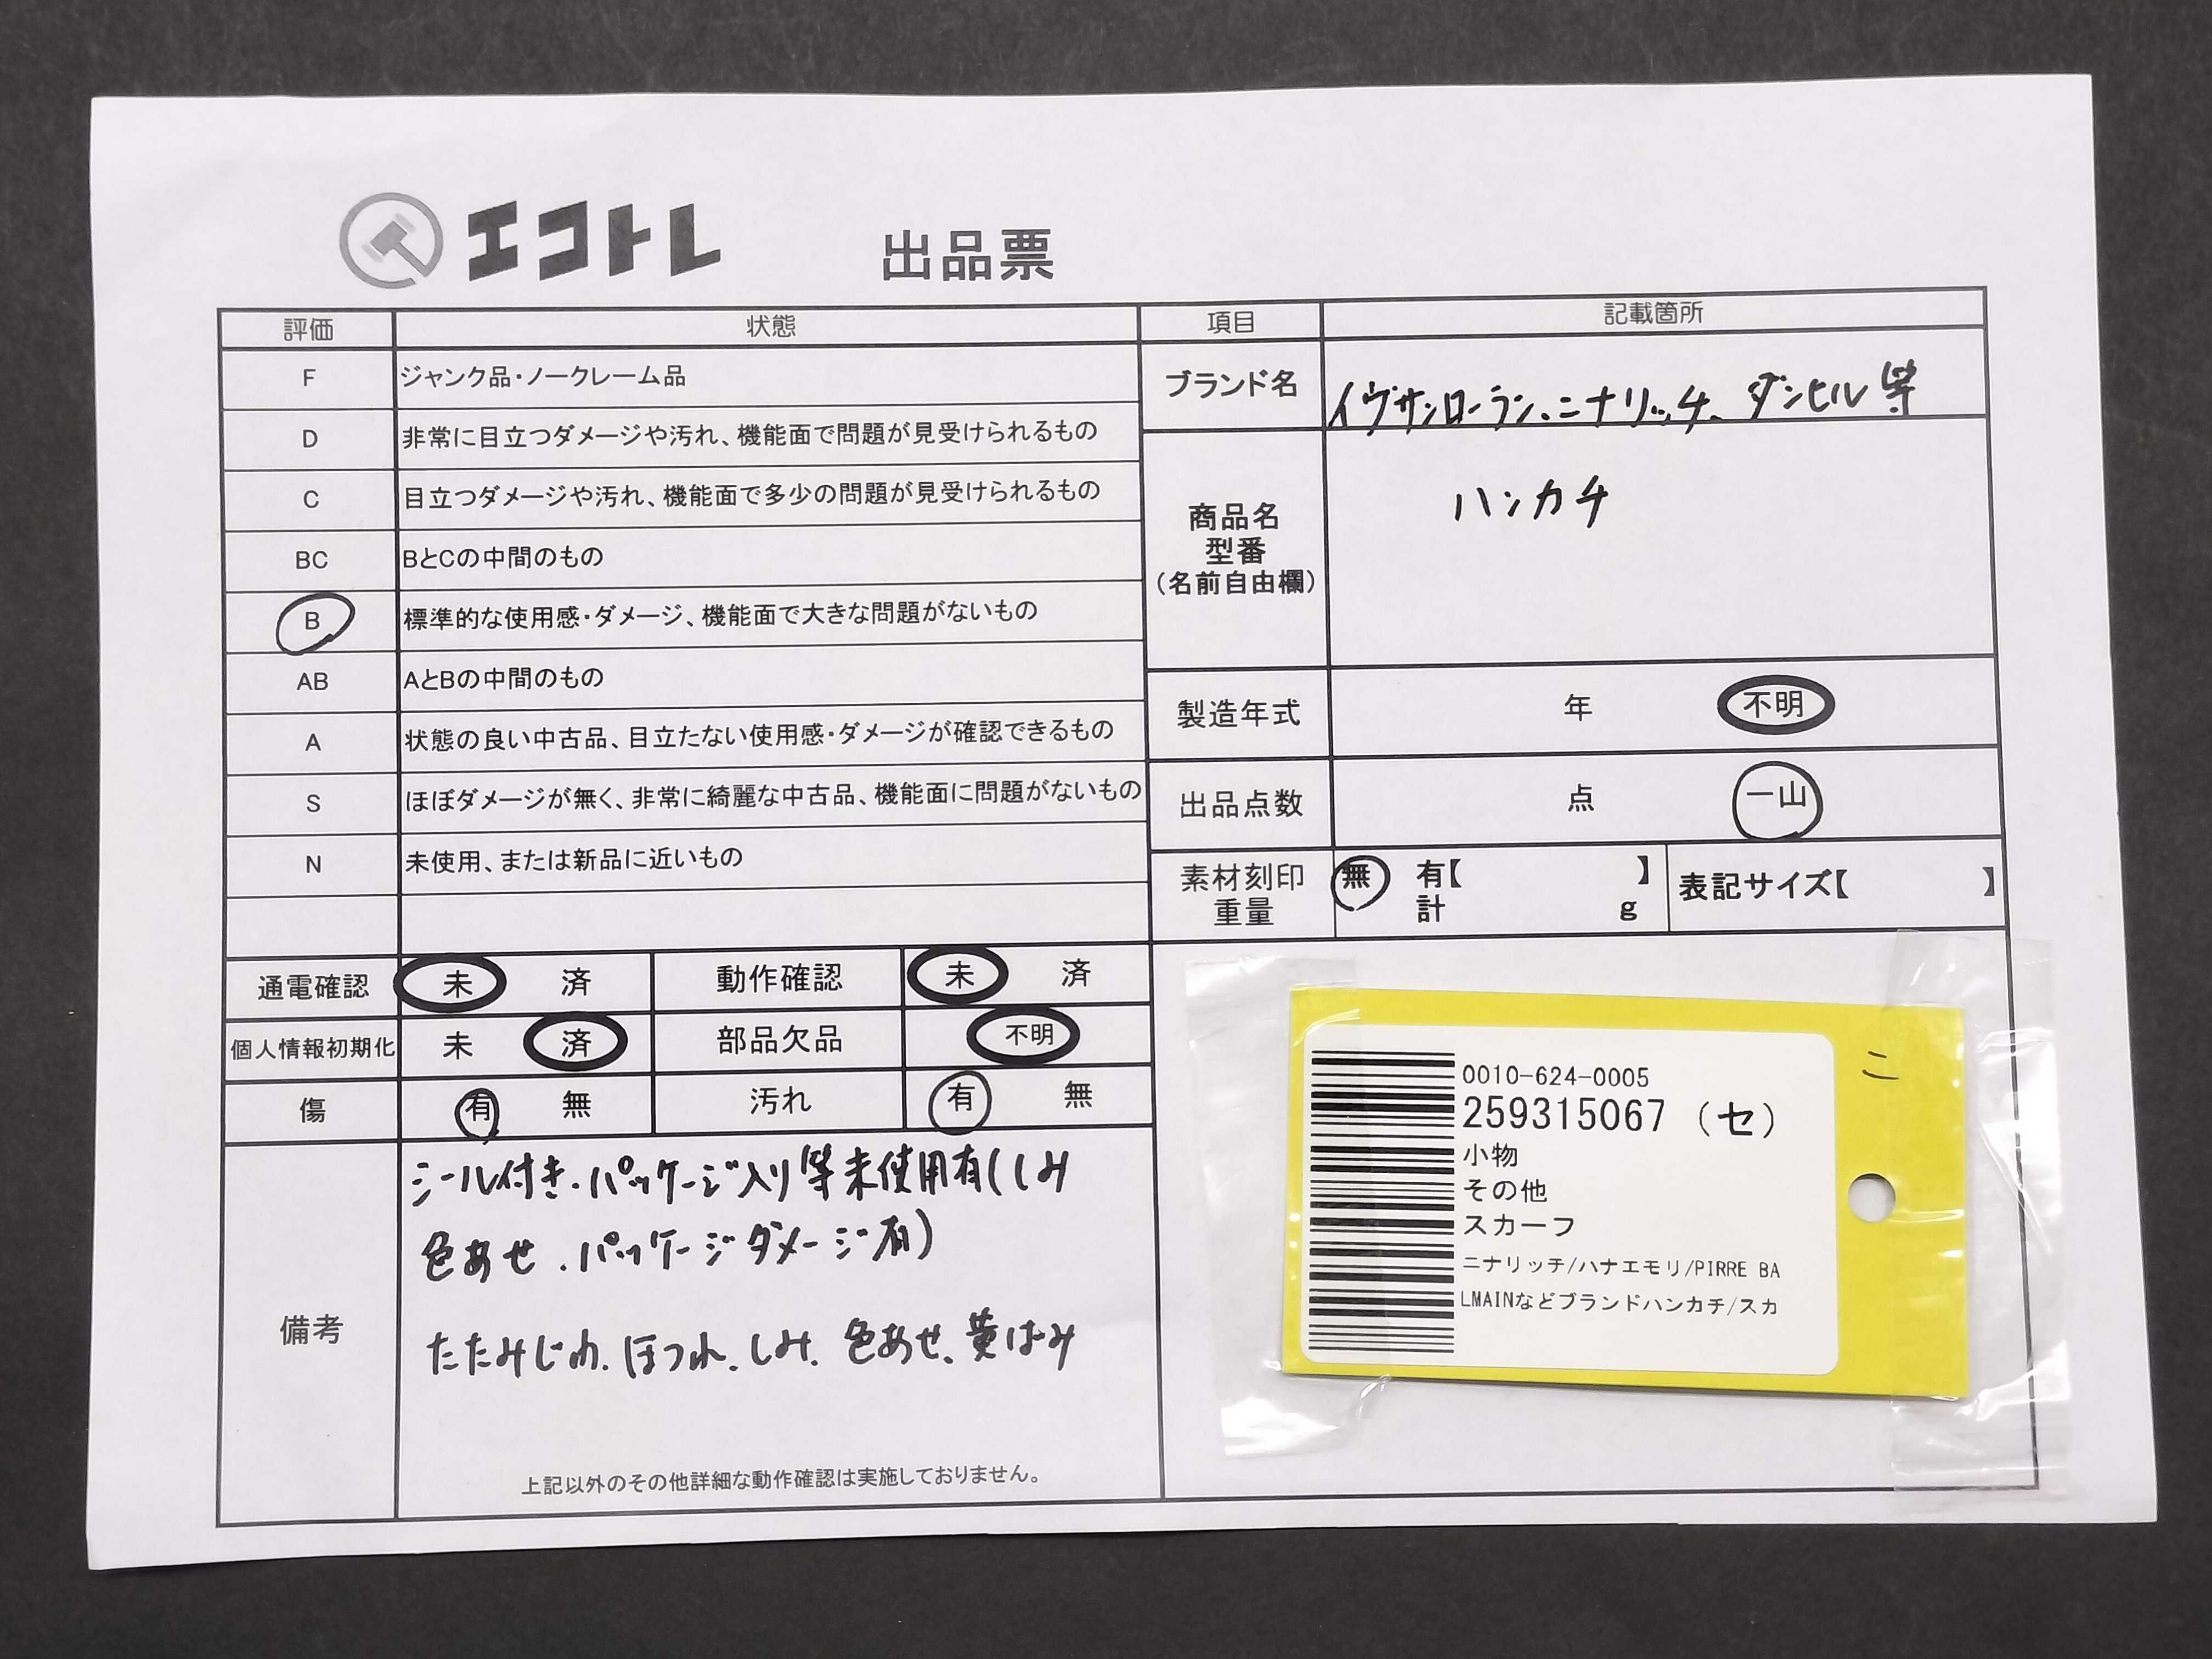 エコトレ 出品票
評価 状態
F ジャンク品・ノークレーム品
D 非常に目立つダメージや汚れ、機能面で問題が見受けられるもの
C 目立つダメージや汚れ、機能面で多少の問題が見受けられるもの
BC BとCの中間のもの
B 標準的な使用感・ダメージ、機能面で大きな問題がないもの
AB AとBの中間のもの
A 状態の良い中古品、目立たない使用感・ダメージが確認できるもの
S ほぼダメージが無く、非常に綺麗な中古品、機能面に問題がないもの
N 未使用、または新品に近いもの
通電確認 未 済 動作確認 未 済
個人情報初期化 未 済 部品欠品 不明
傷 有 無 汚れ 有 無
備考
シール付き.パッケージ入り等未使用有(しみ
色あせ.パッケージダメージ有)
たたみじわ.ほつれ.しみ.色あせ.黄ばみ
上記以外のその他詳細な動作確認は実施しておりません。
項目 記載箇所
ブランド名 イヴサンローラン.ニナリッチ.ダンヒル等
商品名
型番
(名前自由欄)
ハンカチ
製造年式 年 不明
出品点数 点 一山
素材刻印 無 有【 】 表記サイズ【 】
重量 計 g
0010-624-0005
259315067 (セ)
小物
その他
スカーフ
ニナリッチ/ハナエモリ/PIRRE BA
LMAINなどブランドハンカチ/スカ